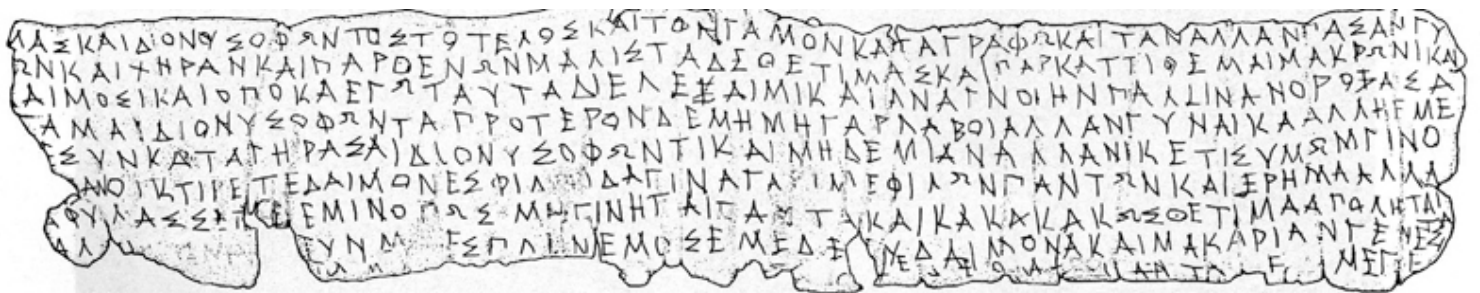 ΜΑΣΚΑΙΔΙΟΝΥΣΟΦΩΝΤΟΣΤΟΤΕΛΟΣΚΑΙΤΟΝΓΑΜΟΝΚΑΤΑΓΡΑΦΩΚΑΙΤΑΝΑΛΛΑΝΠΑΣΑΝΓΥ
ΩΝΚΑΙΧΗΡΑΝΚΑΙΠΑΡΘΕΝΩΝΜΑΛΙΣΤΑΔΕΘΕΤΙΜΑΣΚΑΙΠΑΡΚΑΤΤΙΘΕΜΑΙΜΑΚΡΩΝΙΚΑΙ
ΔΑΙΜΟΣΙΚΑΙΟΠΟΚΑΕΓΩΤΑΥΤΑΔΙΕΛΕΞΑΙΜΙΚΑΙΑΝΑΓΝΟΙΗΝΠΑΛΛΙΝΑΝΟΡΟΞΑΣΑ
ΓΑΜΑΙΔΙΟΝΥΣΟΦΩΝΤΑΠΡΟΤΕΡΟΝΔΕΜΗΜΗΓΑΡΛΑΒΟΙΑΛΛΑΝΓΥΝΑΙΚΑΑΛΛΗΕΜΕ
ΕΣΥΝΚΑΤΑΓΗΡΑΣΑΙΔΙΟΝΥΣΟΦΩΝΤΙΚΑΙΜΗΔΕΜΙΑΝΑΛΛΑΝΙΚΕΤΙΣΥΜΩΜΓΙΝΟ
ΑΝΟΙΚΤΙΡΕΤΕΔΑΙΜΟΝΕΣΦΙΛ ΙΔΑΓΙΝΑΓΑΡΙΜΕΦΙΛΩΝΠΑΝΤΩΝΚΑΙΕΡΗΜΑΑΛΛΑ
ΑΦΥΛΑΣΣΕΤΕΕΜΙΝΟΠΩΣΜΗΓΙΝΗΤΑΙΤΑΥΤΑΚΑΙΚΑΚΑΚΑΚΩΣΘΕΤΙΜΑΑΠΟΛΗΤΑΙ
ΑΛ ΣΥΝΜ ΕΣΠΛΗΝΕΜΟΣΕΜΕΔΕΕΥΔΑΙΜΟΝΑΚΑΙΜΑΚΑΡΙΑΝΓΕΝΕΣ